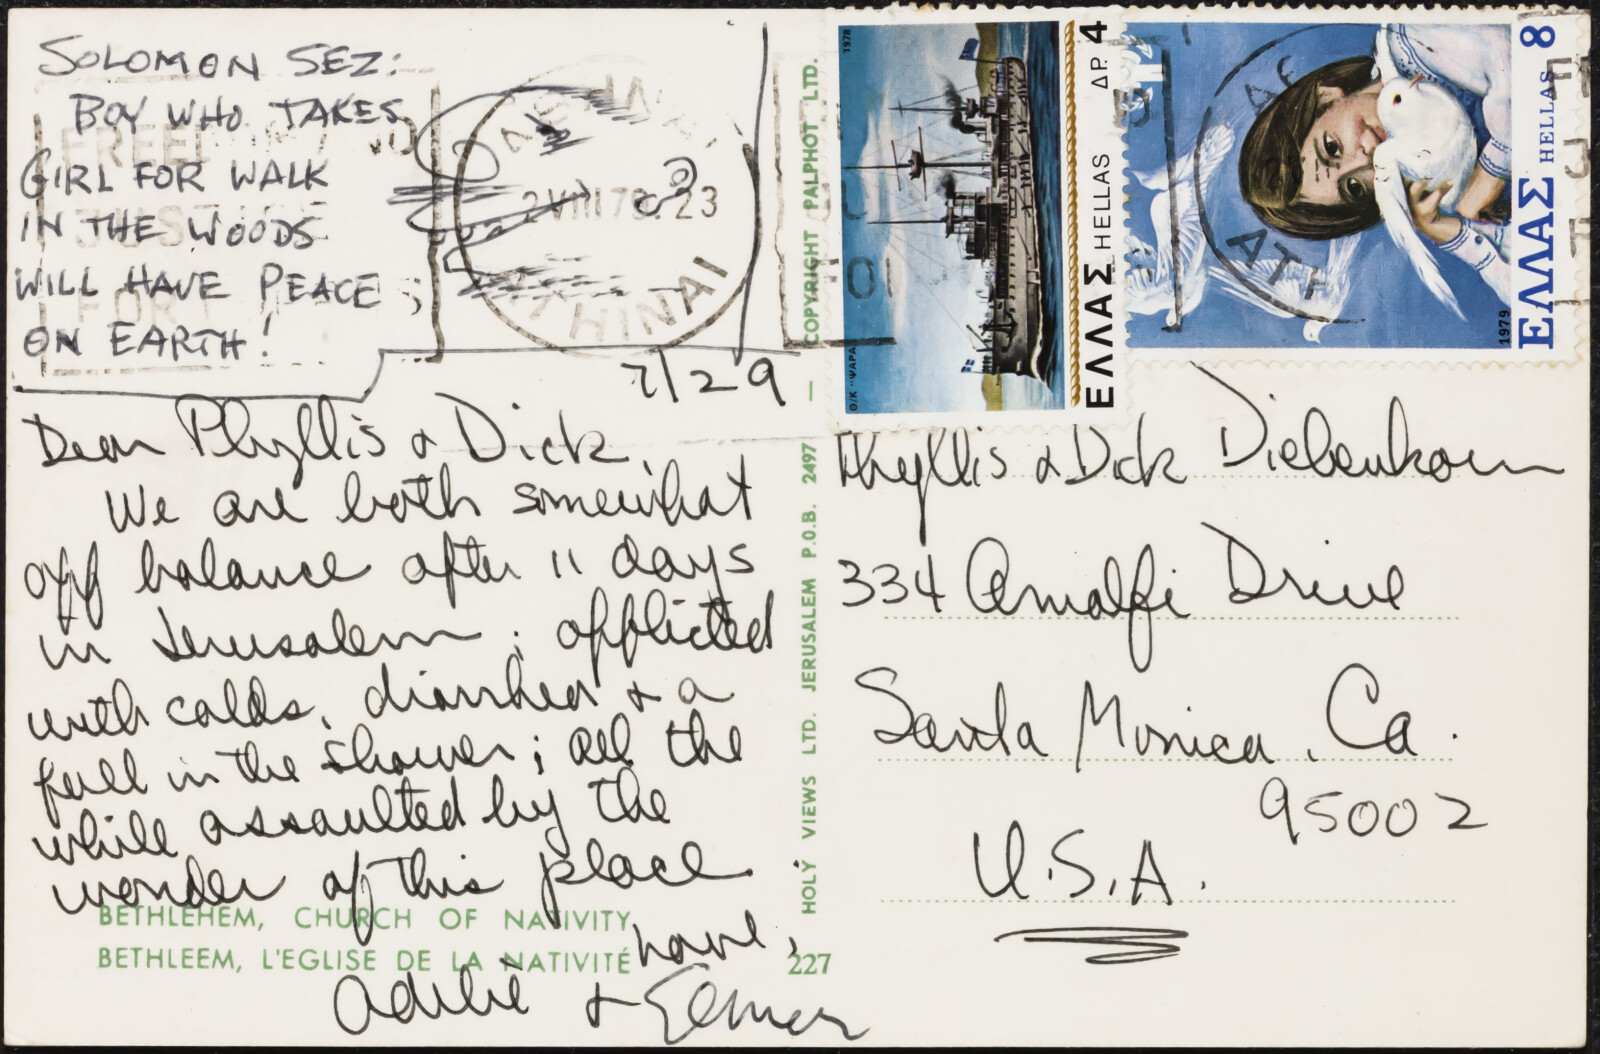 SOLOMON SEZ:
BOY WHO TAKES
GIRL FOR WALK
IN THE WOODS
WILL HAVE PEACE
ON EARTH!
2 VIII 79 23
ATHINAI
7/29
Dear Phyllis & Dick,
We are both somewhat
off balance after 11 days
in Jerusalem; afflicted
with colds, diarrhea & a
fall in the shower; all the
while assaulted by the
wonder of this place.
Love,
Adelie & Elmer
BETHLEHEM, CHURCH OF NATIVITY
BETHLEEM, L'EGLISE DE LA NATIVITÉ
227
HOLY VIEWS LTD. JERUSALEM P.O.B. 2497 — COPYRIGHT PALPHOT LTD.
1978
Θ/Κ "ΨΑΡΑ
ΕΛΛΑΣ HELLAS ΔΡ. 4
1979
ΕΛΛΑΣ HELLAS 8
Phyllis & Dick Diebenkorn
334 Amalfi Drive
Santa Monica, Ca.
95002
U.S.A.